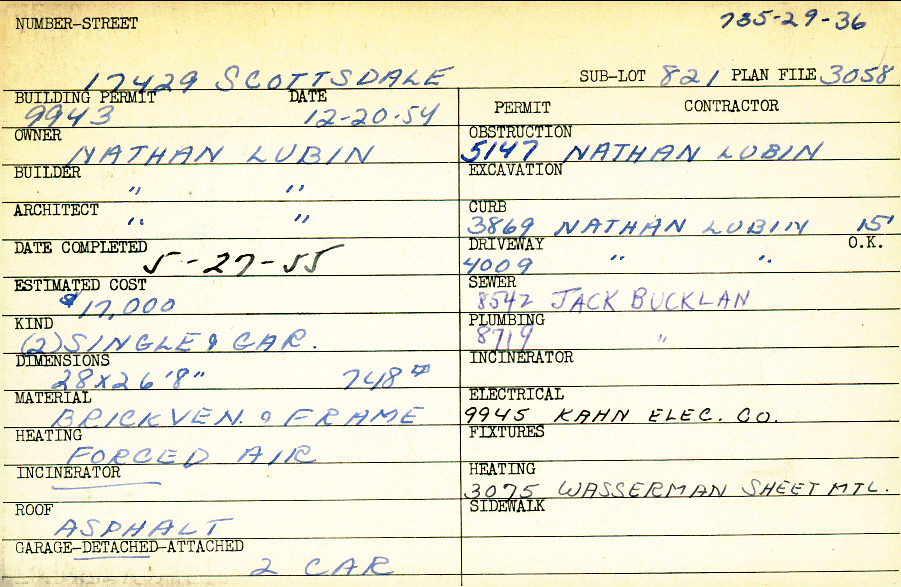 NUMBER-STREET 735-29-36
17429 SCOTTSDALE SUB-LOT 821 PLAN FILE 3058
BUILDING PERMIT DATE
9943 12-20-54
OWNER
NATHAN LUBIN
BUILDER
" "
ARCHITECT
" "
DATE COMPLETED
5-27-55
ESTIMATED COST
$17,000
KIND
(2) SINGLE & GAR.
DIMENSIONS
28x26'8" 748#
MATERIAL
BRICK VEN. & FRAME
HEATING
FORCED AIR
INCINERATOR
ROOF
ASPHALT
GARAGE-DETACHED-ATTACHED
2 CAR
PERMIT CONTRACTOR
OBSTRUCTION
5147 NATHAN LUBIN
EXCAVATION
CURB
3869 NATHAN LUBIN 15'
DRIVEWAY O.K.
4009 " "
SEWER
8542 JACK BUCKLAN
PLUMBING
8719 "
INCINERATOR
ELECTRICAL
9945 KAHN ELEC. CO.
FIXTURES
HEATING
3075 WASSERMAN SHEET MTL.
SIDEWALK